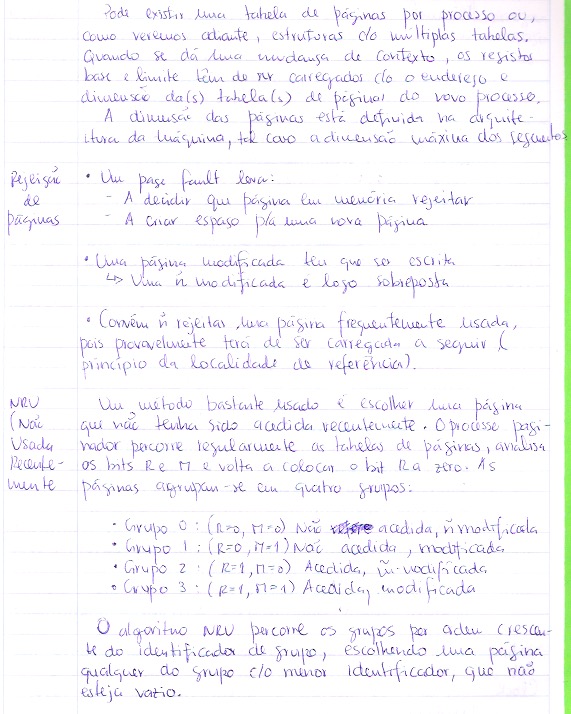 Pode existir uma tabela de páginas por processo ou,
como veremos adiante, estruturas c/o múltiplas tabelas.
Quando se dá uma mudança de contexto, os registos
base e limite têm de ser carregados c/o o endereço e
dimensão da(s) tabela(s) de páginas do novo processo.
A dimensão das páginas está definida na arquite-
ctura da máquina, tal como a dimensão máxima dos segmentos
Rejeição
de
páginas
• Um page fault leva:
- A decidir que página em memória rejeitar
- A criar espaço p/a uma nova página
• Uma página modificada tem que ser escrita
↳ Uma ñ modificada é logo sobreposta
• Convém ñ rejeitar uma página frequentemente usada,
pois provavelmente terá de ser carregada a seguir (
princípio da localidade de referência).
NRU
(Não
Usada
Recente-
mente
Um método bastante usado é escolher uma página
que não tenha sido acedida recentemente. O processo pagi-
nador percorre regularmente as tabelas de páginas, analisa
os bits R e M e volta a colocar o bit R a zero. As
páginas agrupam-se em quatro grupos:
• Grupo 0: (R=0, M=0) Não acedida, ñ modificada
• Grupo 1: (R=0, M=1) Não acedida, modificada
• Grupo 2: (R=1, M=0) Acedida, ñ modificada
• Grupo 3: (R=1, M=1) Acedida, modificada
O algoritmo NRU percorre os grupos por ordem crescen-
te do identificador de grupo, escolhendo uma página
qualquer do grupo c/o menor identificador, que não
esteja vazio.